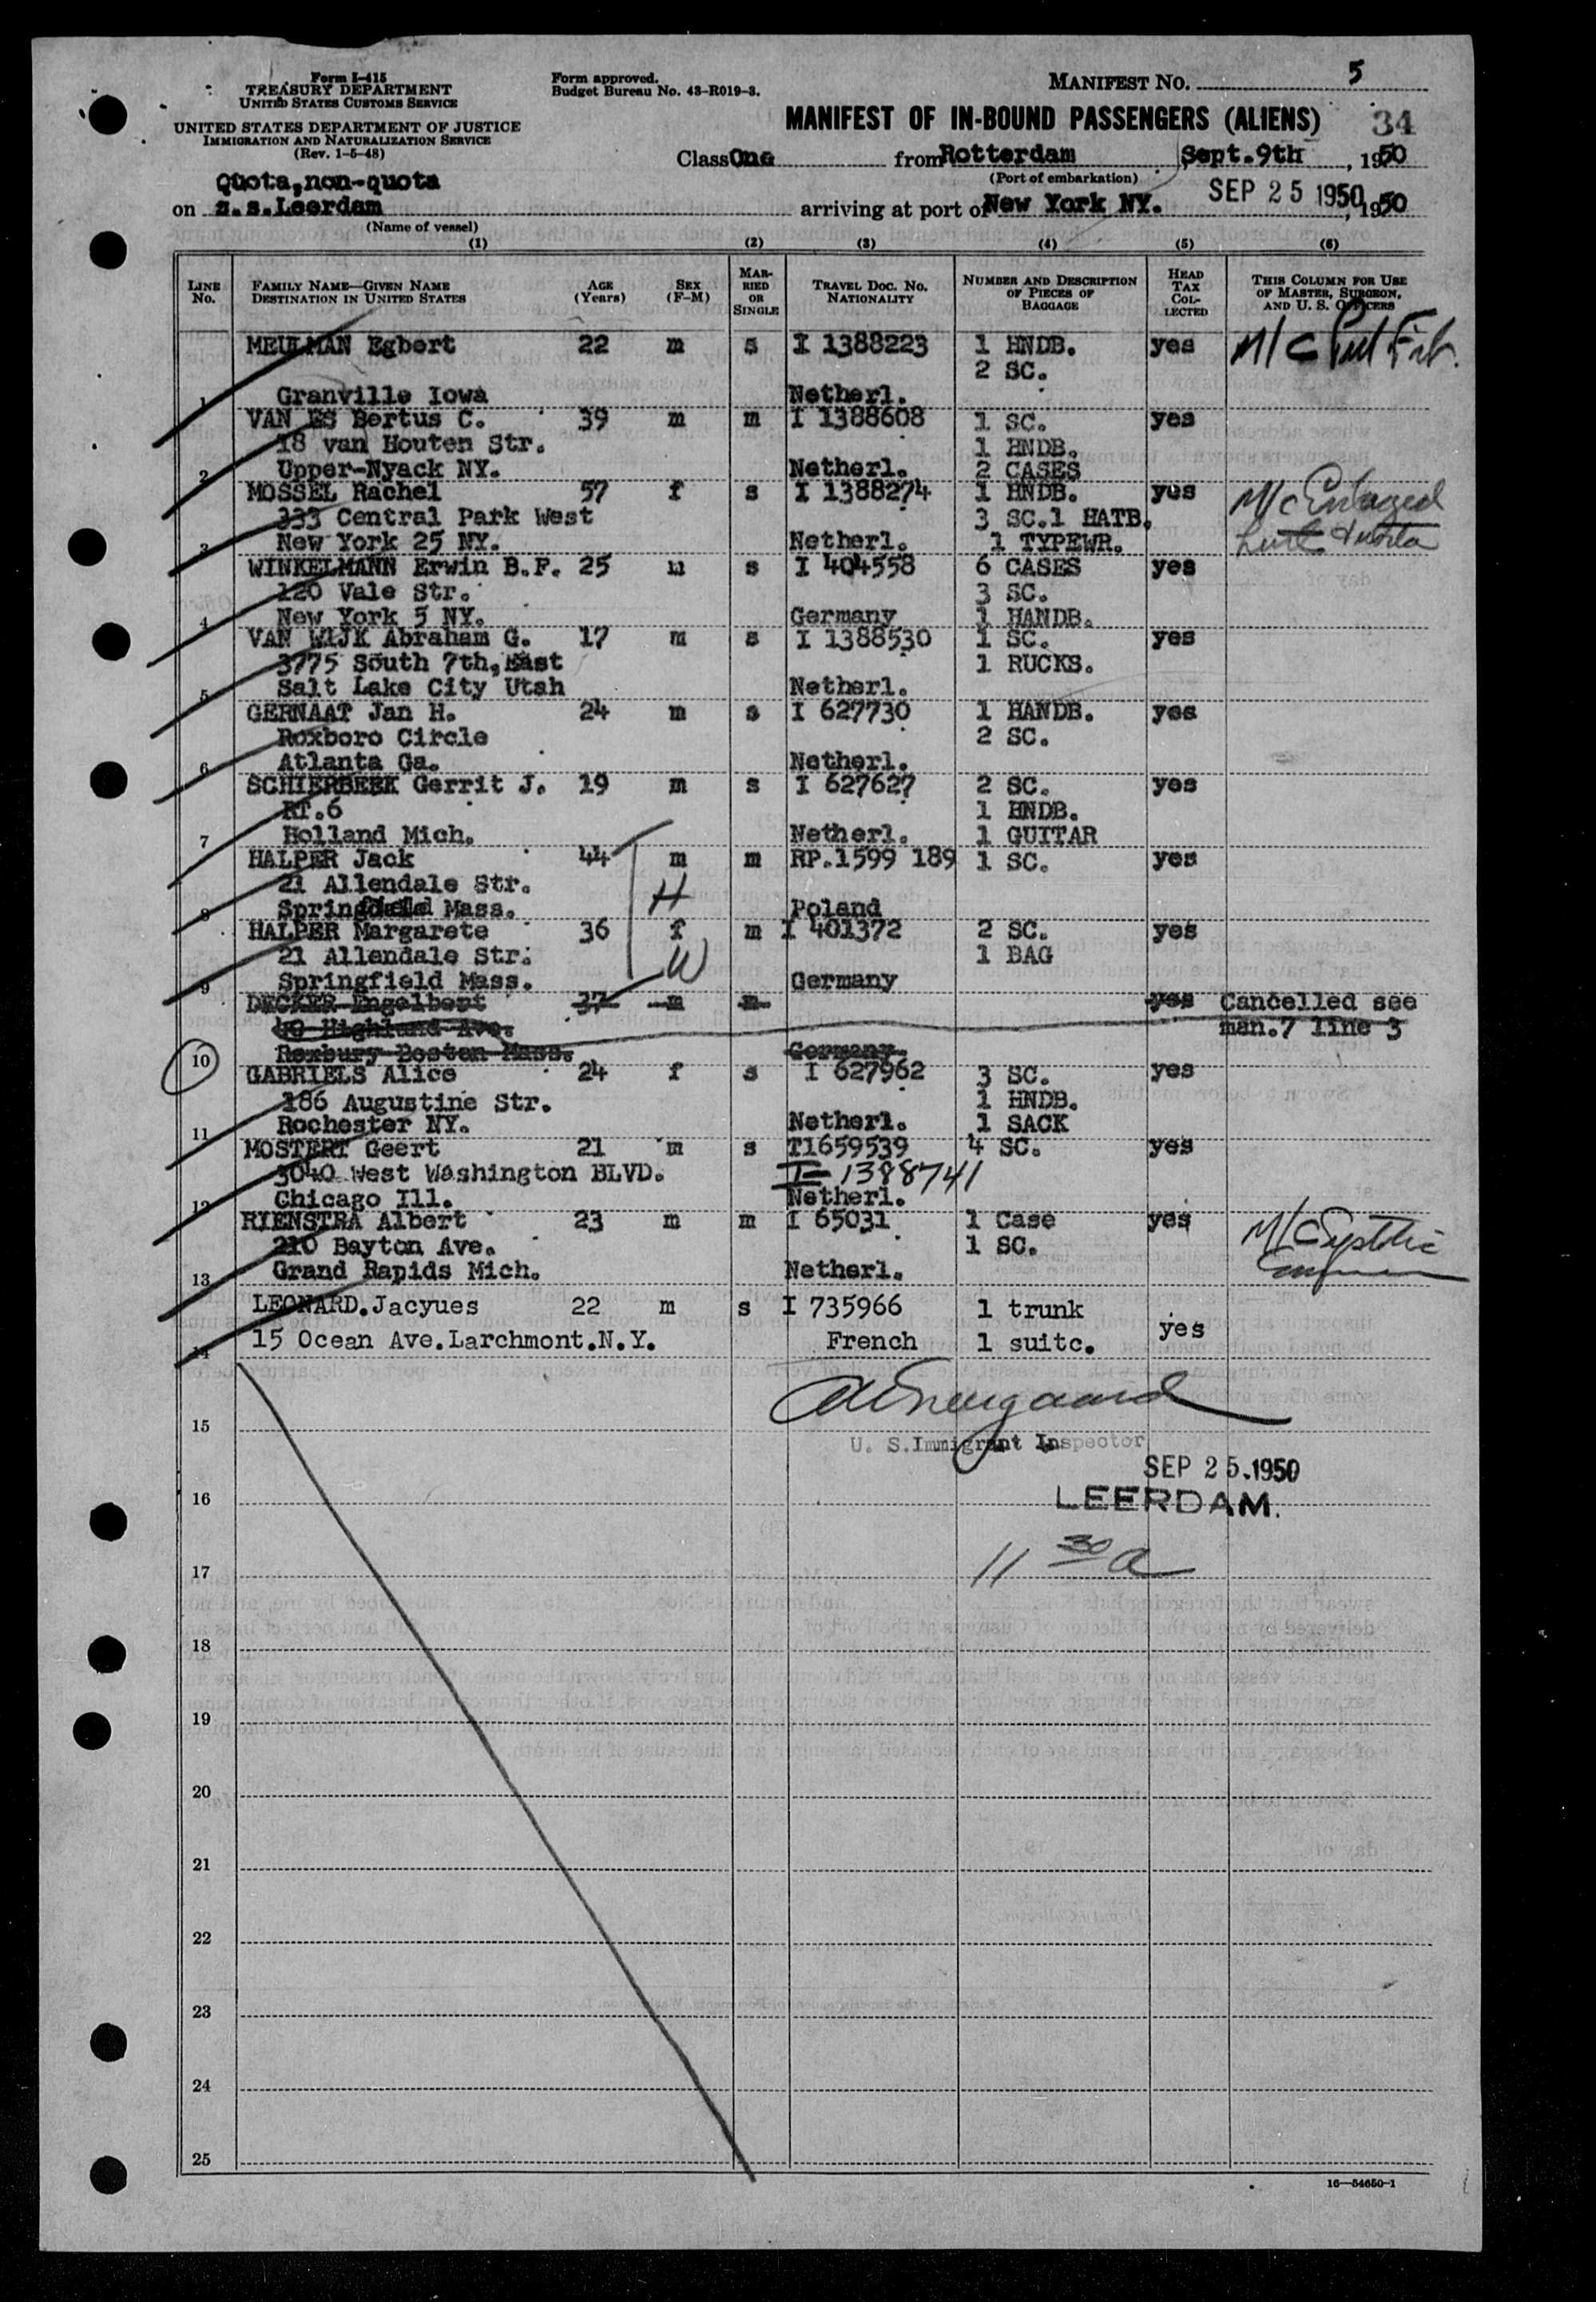 Form I-415
TREASURY DEPARTMENT
UNITED STATES CUSTOMS SERVICE
UNITED STATES DEPARTMENT OF JUSTICE
IMMIGRATION AND NATURALIZATION SERVICE
(Rev. 1-5-48)
Form approved.
Budget Bureau No. 43-R019-3.
MANIFEST NO. 5
MANIFEST OF IN-BOUND PASSENGERS (ALIENS) 34
Class One from Rotterdam Sept.9th, 1950
(Port of embarkation)
Quota,non-quota
on s.s.Leerdam arriving at port of New York NY. SEP 25 1950, 1950
(Name of vessel)
(1) (2) (3) (4) (5) (6)
LINE NO. FAMILY NAME—GIVEN NAME DESTINATION IN UNITED STATES AGE (Years) SEX (F-M) MARRIED OR SINGLE TRAVEL DOC. NO. NATIONALITY NUMBER AND DESCRIPTION OF PIECES OF BAGGAGE HEAD TAX COLLECTED THIS COLUMN FOR USE OF MASTER, SURGEON, AND U. S. OFFICERS
MEULMAN Egbert 22 m s I 1388223 1 HNDB. yes M/C
2 SC.
1 Granville Iowa Netherl.
VAN ES Bertus C. 39 m m I 1388608 1 SC. yes
18 van Houten Str. 1 HNDB.
2 Upper-Nyack NY. Netherl. 2 CASES
MOSSEL Rachel 57 f s I 1388274 1 HNDB. yes M/C Enlarged
333 Central Park West 3 SC.1 HATB.
3 New York 25 NY. Netherl. 1 TYPEWR.
WINKELMANN Erwin B.F. 25 m s I 404558 6 CASES yes
120 Vale Str. 3 SC.
4 New York 5 NY. Germany 1 HANDB.
VAN WIJK Abraham G. 17 m s I 1388530 1 SC. yes
3775 South 7th,East 1 RUCKS.
5 Salt Lake City Utah Netherl.
GERNAAT Jan H. 24 m s I 627730 1 HANDB. yes
Roxboro Circle 2 SC.
6 Atlanta Ga. Netherl.
SCHIERBEEK Gerrit J. 19 m s I 627627 2 SC. yes
RT.6 1 HNDB.
7 Holland Mich. Netherl. 1 GUITAR
HALPER Jack 44 m m RP.1599 189 1 SC. yes
21 Allendale Str. H
8 Springfield Mass. Poland
HALPER Margarete 36 f m I 401372 2 SC. yes
21 Allendale Str. W 1 BAG
9 Springfield Mass. Germany
DECKER Engelbert 37 m m yes Cancelled see
49 Highland Ave. man.7 line 3
10 Roxbury Boston Mass. Germany
GABRIELS Alice 24 f s I 627962 3 SC. yes
186 Augustine Str. 1 HNDB.
11 Rochester NY. Netherl. 1 SACK
MOSTERT Geert 21 m s T1659539 4 SC. yes
3040 West Washington BLVD. I-1388741
12 Chicago Ill. Netherl.
RIENSTRA Albert 23 m m I 65031 1 Case yes M/C Systolic
210 Bayton Ave. 1 SC.
13 Grand Rapids Mich. Netherl.
LEONARD.Jacyues 22 m s I 735966 1 trunk yes
14 15 Ocean Ave.Larchmont.N.Y. French 1 suitc.
15
U. S. Immigrant Inspector
SEP 25.1950
16 LEERDAM.
17 11 30 a
18
19
20
21
22
23
24
25
16—54650-1